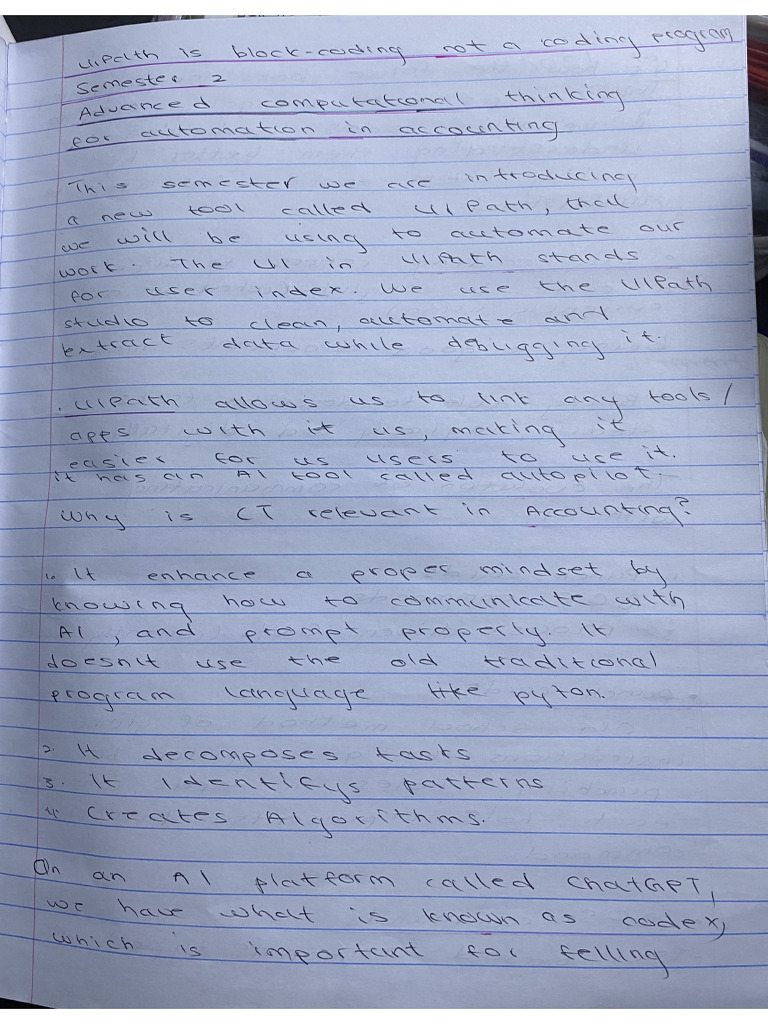 UiPath is block-coding not a coding program
Semester 2
Advanced computational thinking
for automation in accounting
This semester we are introducing
a new tool called UI Path, that
we will be using to automate our
work. The UI in UIPath stands
for user index. We use the UIPath
studio to clean, automate and
extract data while debugging it.
. UIPath allows us to link any tools/
apps with it us, making it
easier for us users to use it.
it has an AI tool called autopilot.
Why is CT relevant in Accounting?
1. It enhance a proper mindset by
knowing how to communicate with
AI, and prompt properly. It
doesn't use the old traditional
program language like pyton.
2. It decomposes tasks
3. It identifys patterns
4. Creates Algorithms.
On an AI platform called ChatGPT,
we have what is known as codex,
which is important for felling